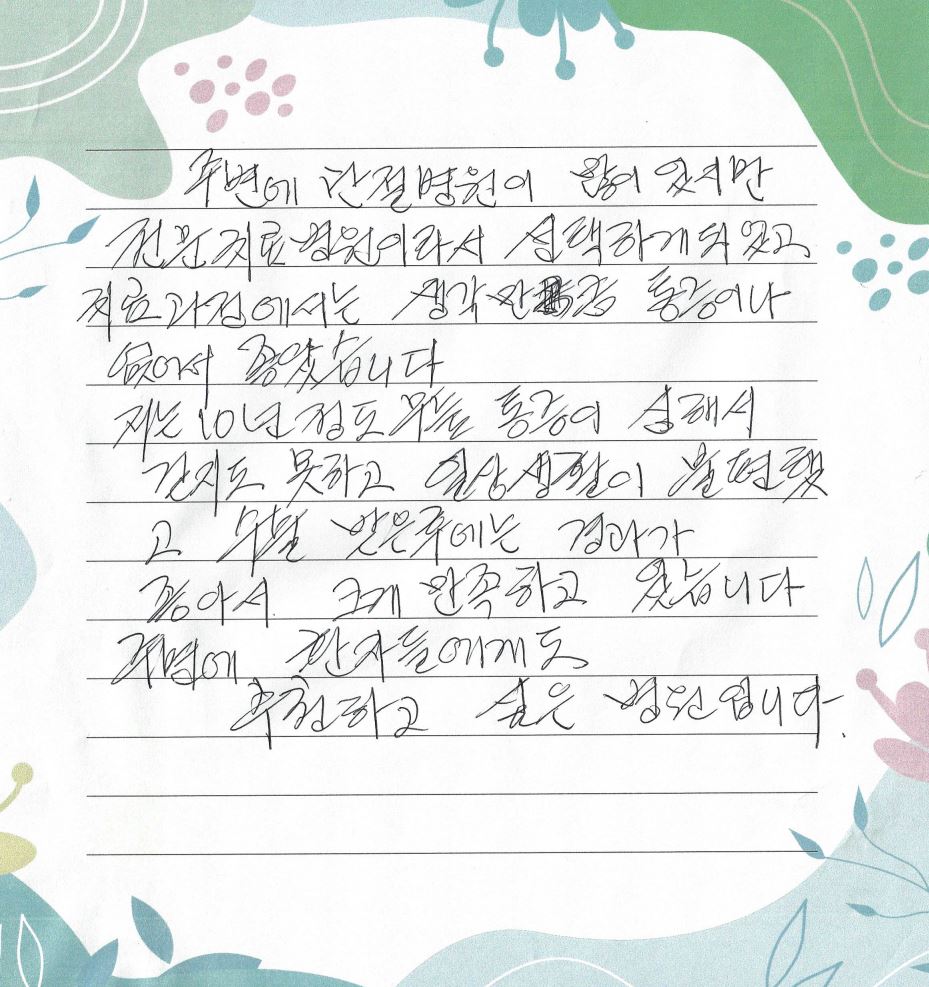 주변에 관절병원이 많이 있지만
전문치료병원이라서 선택하게 되었고
치료과정에서는 생각 통증이나
없어서 좋았습니다
저는 10년 정도 무릎 통증이 심해서
걷지도 못하고 일상생활이 불편했
고 받은후에는 경과가
좋아서 크게 만족하고 있습니다
주변에 환자들에게도
추천하고 싶은 병원입니다.